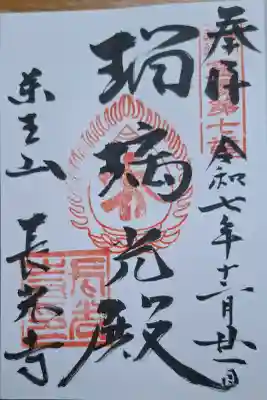 奉拝 令和七年十二月廿一日
瑠璃光殿
薬王山 長光寺